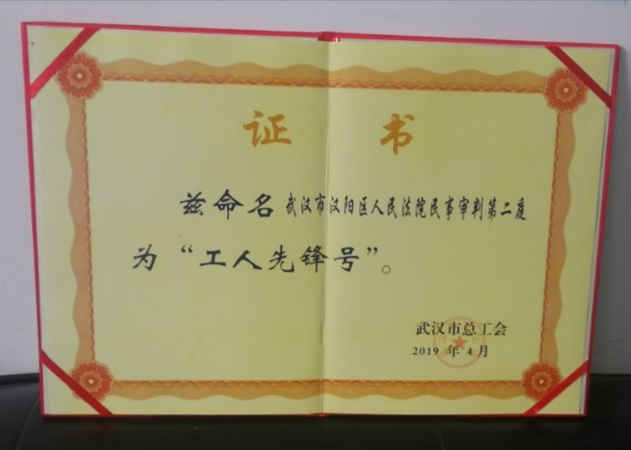 证 书
兹命名武汉市汉阳区人民法院民事审判第二庭
为“工人先锋号”。
武汉市总工会
2019 年 4 月